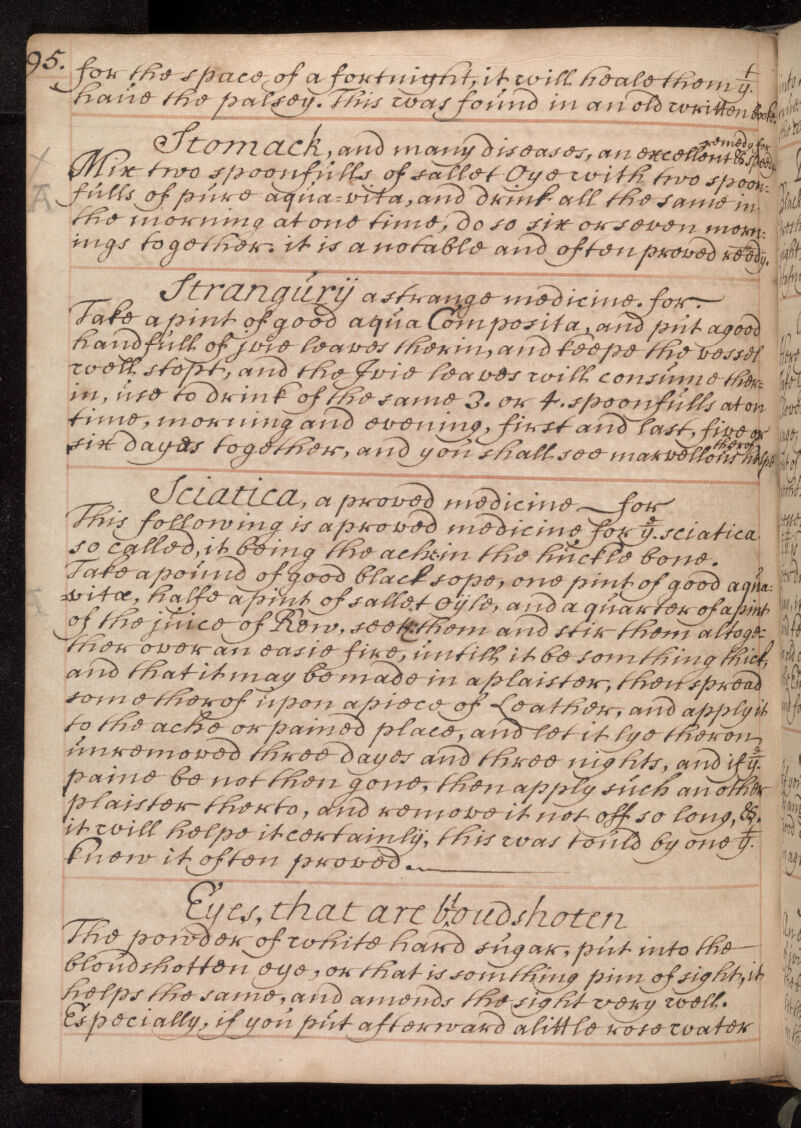 95.
for the space of a fortnight, it will heale them yt
haue the palsey. This was found in an old written booke.
Stomack, and many diseases, an excellent & speedy remedy for
Mix two spoonfulls of sallet Oye with two spoon=
fulls of pure aqua-vita, and drink all the same in
the morning at one time, do so six or seven morn=
ings together. it is a notable and often proved
Strangury a strange medicine. for
Take a pint of good aqua Composita, and put a good
handfull of jvie leaves therin, and keepe the vessel
well stopt, and the Jvie leaves will consume ther=
in, use to drink of the same 3. or 4. spoonfulls at on
time, morning and evening, first and last, five or
six dayes together, and you shall see marvellous helpe therof
Sciatica, a proved medicine for
This following is a proved medicine for ye. sciatica
so called, it being the ache in the huckle bone.
Take a pound of good black sope, one pint of good aqua=
=vitæ, halfe a pint of sallet oyle, and a quarter of a pint
of the juice of Rew, seeth them and stir them altoge=
ther over an easie fire, untill it be somthing thick,
and that it may be made in a plaister, then spread
some therof upon a piece of Leather, and apply it
to the ache or pained place, and let it lye theron
unremoved three dayes and three nights, and if ye.
paine be not then gone, then apply such another
plaister therto, and remove it not off so long, &.
it will helpe it certainly, this was tould by one yt.
knew it often proved.
Eyes, that are bloudshoten
The powder of white hard sugar, put into the
bloudshotten eye, or that is somthing pim of sight, it
helps the same, and amends the sight very well.
Especially, if you put afterward a little rose water